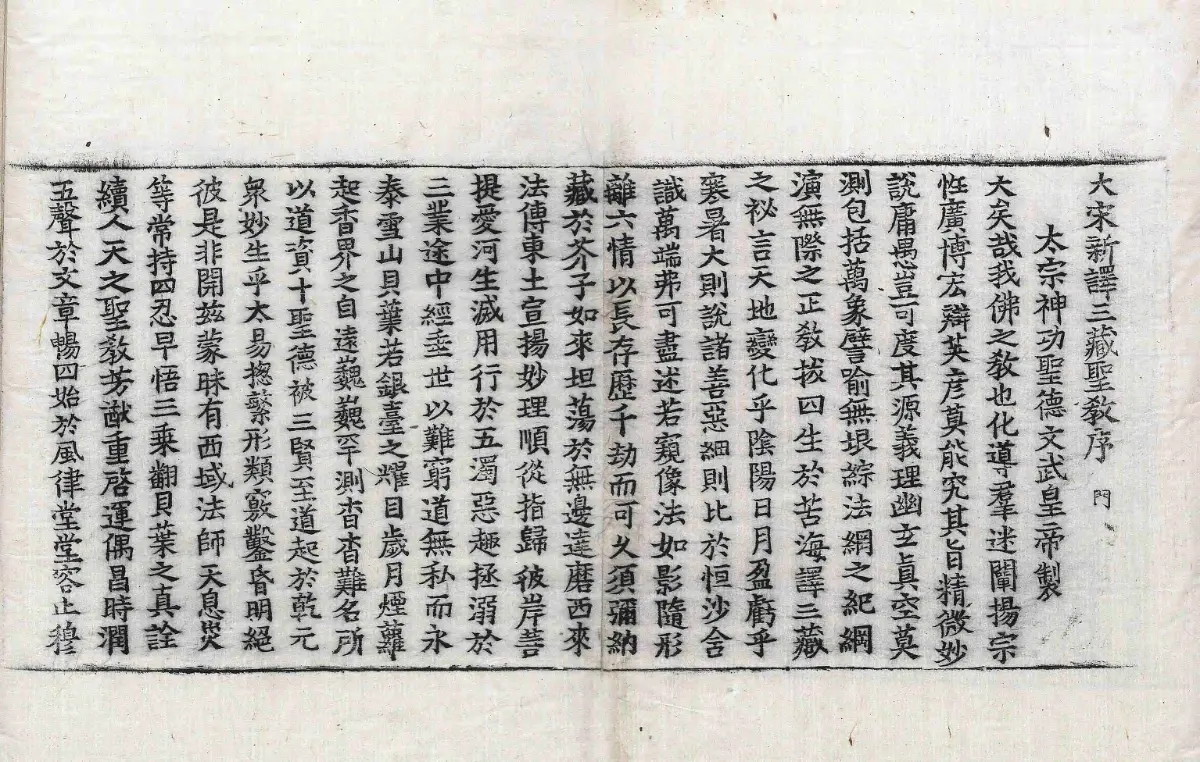 大宋新譯三藏聖敎序 門
太宗神功聖德文武皇帝製
大矣哉我佛之敎也化導羣迷闡揚宗
性廣博宏辯英彦莫能究其旨精微妙
說庸愚豈可度其源義理幽玄眞空莫
測包括萬象譬喻無垠綜法網之紀綱
演無際之正敎拔四生於苦海譯三藏
之祕言天地變化乎陰陽日月盈虧乎
寒暑大則說諸善惡細則比於恒沙含
識萬端弗可盡述若窺像法如影隨形
離六情以長存歷千劫而可久須彌納
藏於芥子如來坦蕩於無邊達磨西來
法傳東土宣揚妙理順從指歸彼岸菩
提愛河生滅用行於五濁惡趣拯溺於
三業途中經垂世以難窮道無私而永
泰雪山貝葉若銀臺之耀目歲月煙蘿
起香界之自遠巍巍罕測杳杳難名所
以道資十聖德被三賢至道起於乾元
衆妙生乎太易揔繫形類竅鑿昏明絕
彼是非開茲蒙昧有西域法師天息災
等常持四忍早悟三乘翻貝葉之真詮
續人天之聖敎芳猷重啓運偶昌時潤
五聲於文章暢四始於風律堂堂容止穆